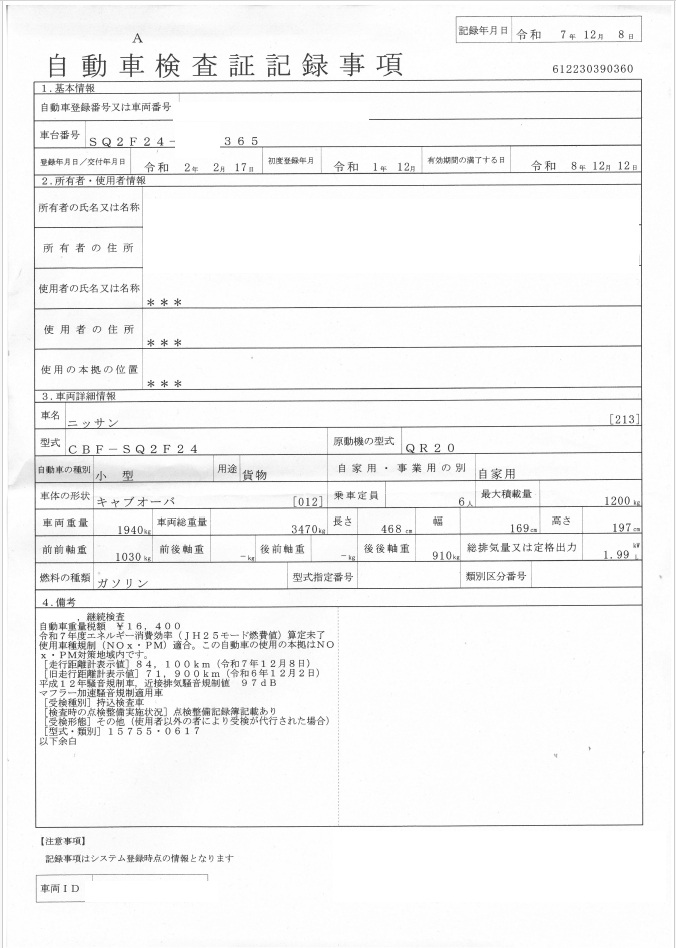 A
記録年月日 令和 7年 12月 8日
自動車検査証記録事項
612230390360
1.基本情報
自動車登録番号又は車両番号
車台番号 SQ2F24- 365
登録年月日/交付年月日 令和 2年 2月 17日 初度登録年月 令和 1年 12月 有効期間の満了する日 令和 8年 12月 12日
2.所有者・使用者情報
所有者の氏名又は名称
所有者の住所
使用者の氏名又は名称 ***
使用者の住所 ***
使用の本拠の位置 ***
3.車両詳細情報
車名 ニッサン [213]
型式 CBF-SQ2F24 原動機の型式 QR20
自動車の種別 小型 用途 貨物 自家用・事業用の別 自家用
車体の形状 キャブオーバ [012] 乗車定員 6人 最大積載量 1200kg
車両重量 1940kg 車両総重量 3470kg 長さ 468cm 幅 169cm 高さ 197cm
前前軸重 1030kg 前後軸重 -kg 後前軸重 -kg 後後軸重 910kg 総排気量又は定格出力 1.99 kW L
燃料の種類 ガソリン 型式指定番号 類別区分番号
4.備考
,継続検査
自動車重量税額 ¥16,400
令和7年度エネルギー消費効率(JH25モード燃費値)算定未了
使用車種規制(NOx・PM)適合。この自動車の使用の本拠はNO
x・PM対策地域内です。
[走行距離計表示値]84,100km(令和7年12月8日)
[旧走行距離計表示値]71,900km(令和6年12月2日)
平成12年騒音規制車、近接排気騒音規制値 97dB
マフラー加速騒音規制適用車
[受検種別]持込検査車
[検査時の点検整備実施状況]点検整備記録簿記載あり
[受検形態]その他(使用者以外の者により受検が代行された場合)
[型式・類別]15755・0617
以下余白
【注意事項】
記録事項はシステム登録時点の情報となります
車両ID